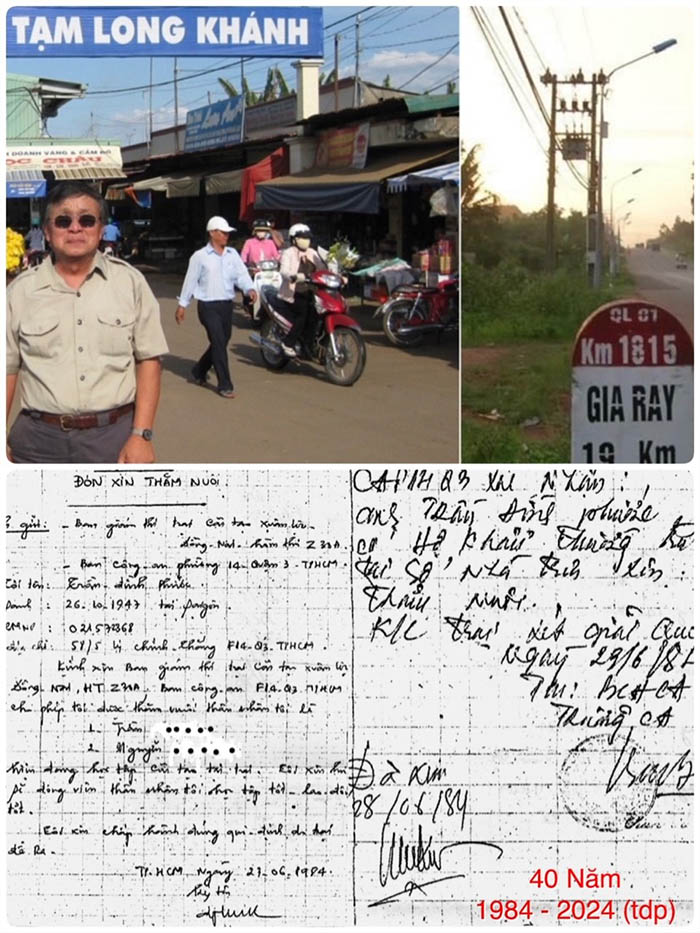 TẠM LONG KHÁNH
DOANH VÀNG & CẦM ĐỒ
QL 01
Km 1815
GIA RAY
19 Km
ĐƠN XIN THĂM NUÔI
gửi: - Ban giám thị trại Cải tạo Xuân Lộc
Đồng-Nai - hòm thư Z 30A
- Ban Công-an phường 14 - Quận 3 - TP.HCM
Tôi tên: Trần-đình Phước
26.10.1947 tại Saigon
021572368
địa chỉ: 51/5 lý chính-thắng F14.Q3.TP.HCM
Kính xin Ban giám thị trại Cải tạo Xuân lộc
Đồng Nai, HT Z30A. Ban công-an F14.Q3 TP.HCM
cho phép tôi được thăm nuôi thân nhân tôi là
1. Trần
2. Nguyễn
Hiện đang học tập cải tạo tại trại. Tôi xin
đi động viên thân nhân tôi học tập tốt - lao động
tốt.
Tôi xin chấp hành đúng qui-định do trại
đề ra.
TP.HCM Ngày 23.06.1984
Ký tên
CAP14 Q3 xác nhận:
anh Trần đình phước
có Hộ khẩu thường trú
tại Số nhà trên xin
thăm nuôi.
K/C trại xét giải quyết
Ngày 23/6/84
TM: BCHCA
Trưởng CA
28/06/84
40 Năm
1984 - 2024 (tdp)